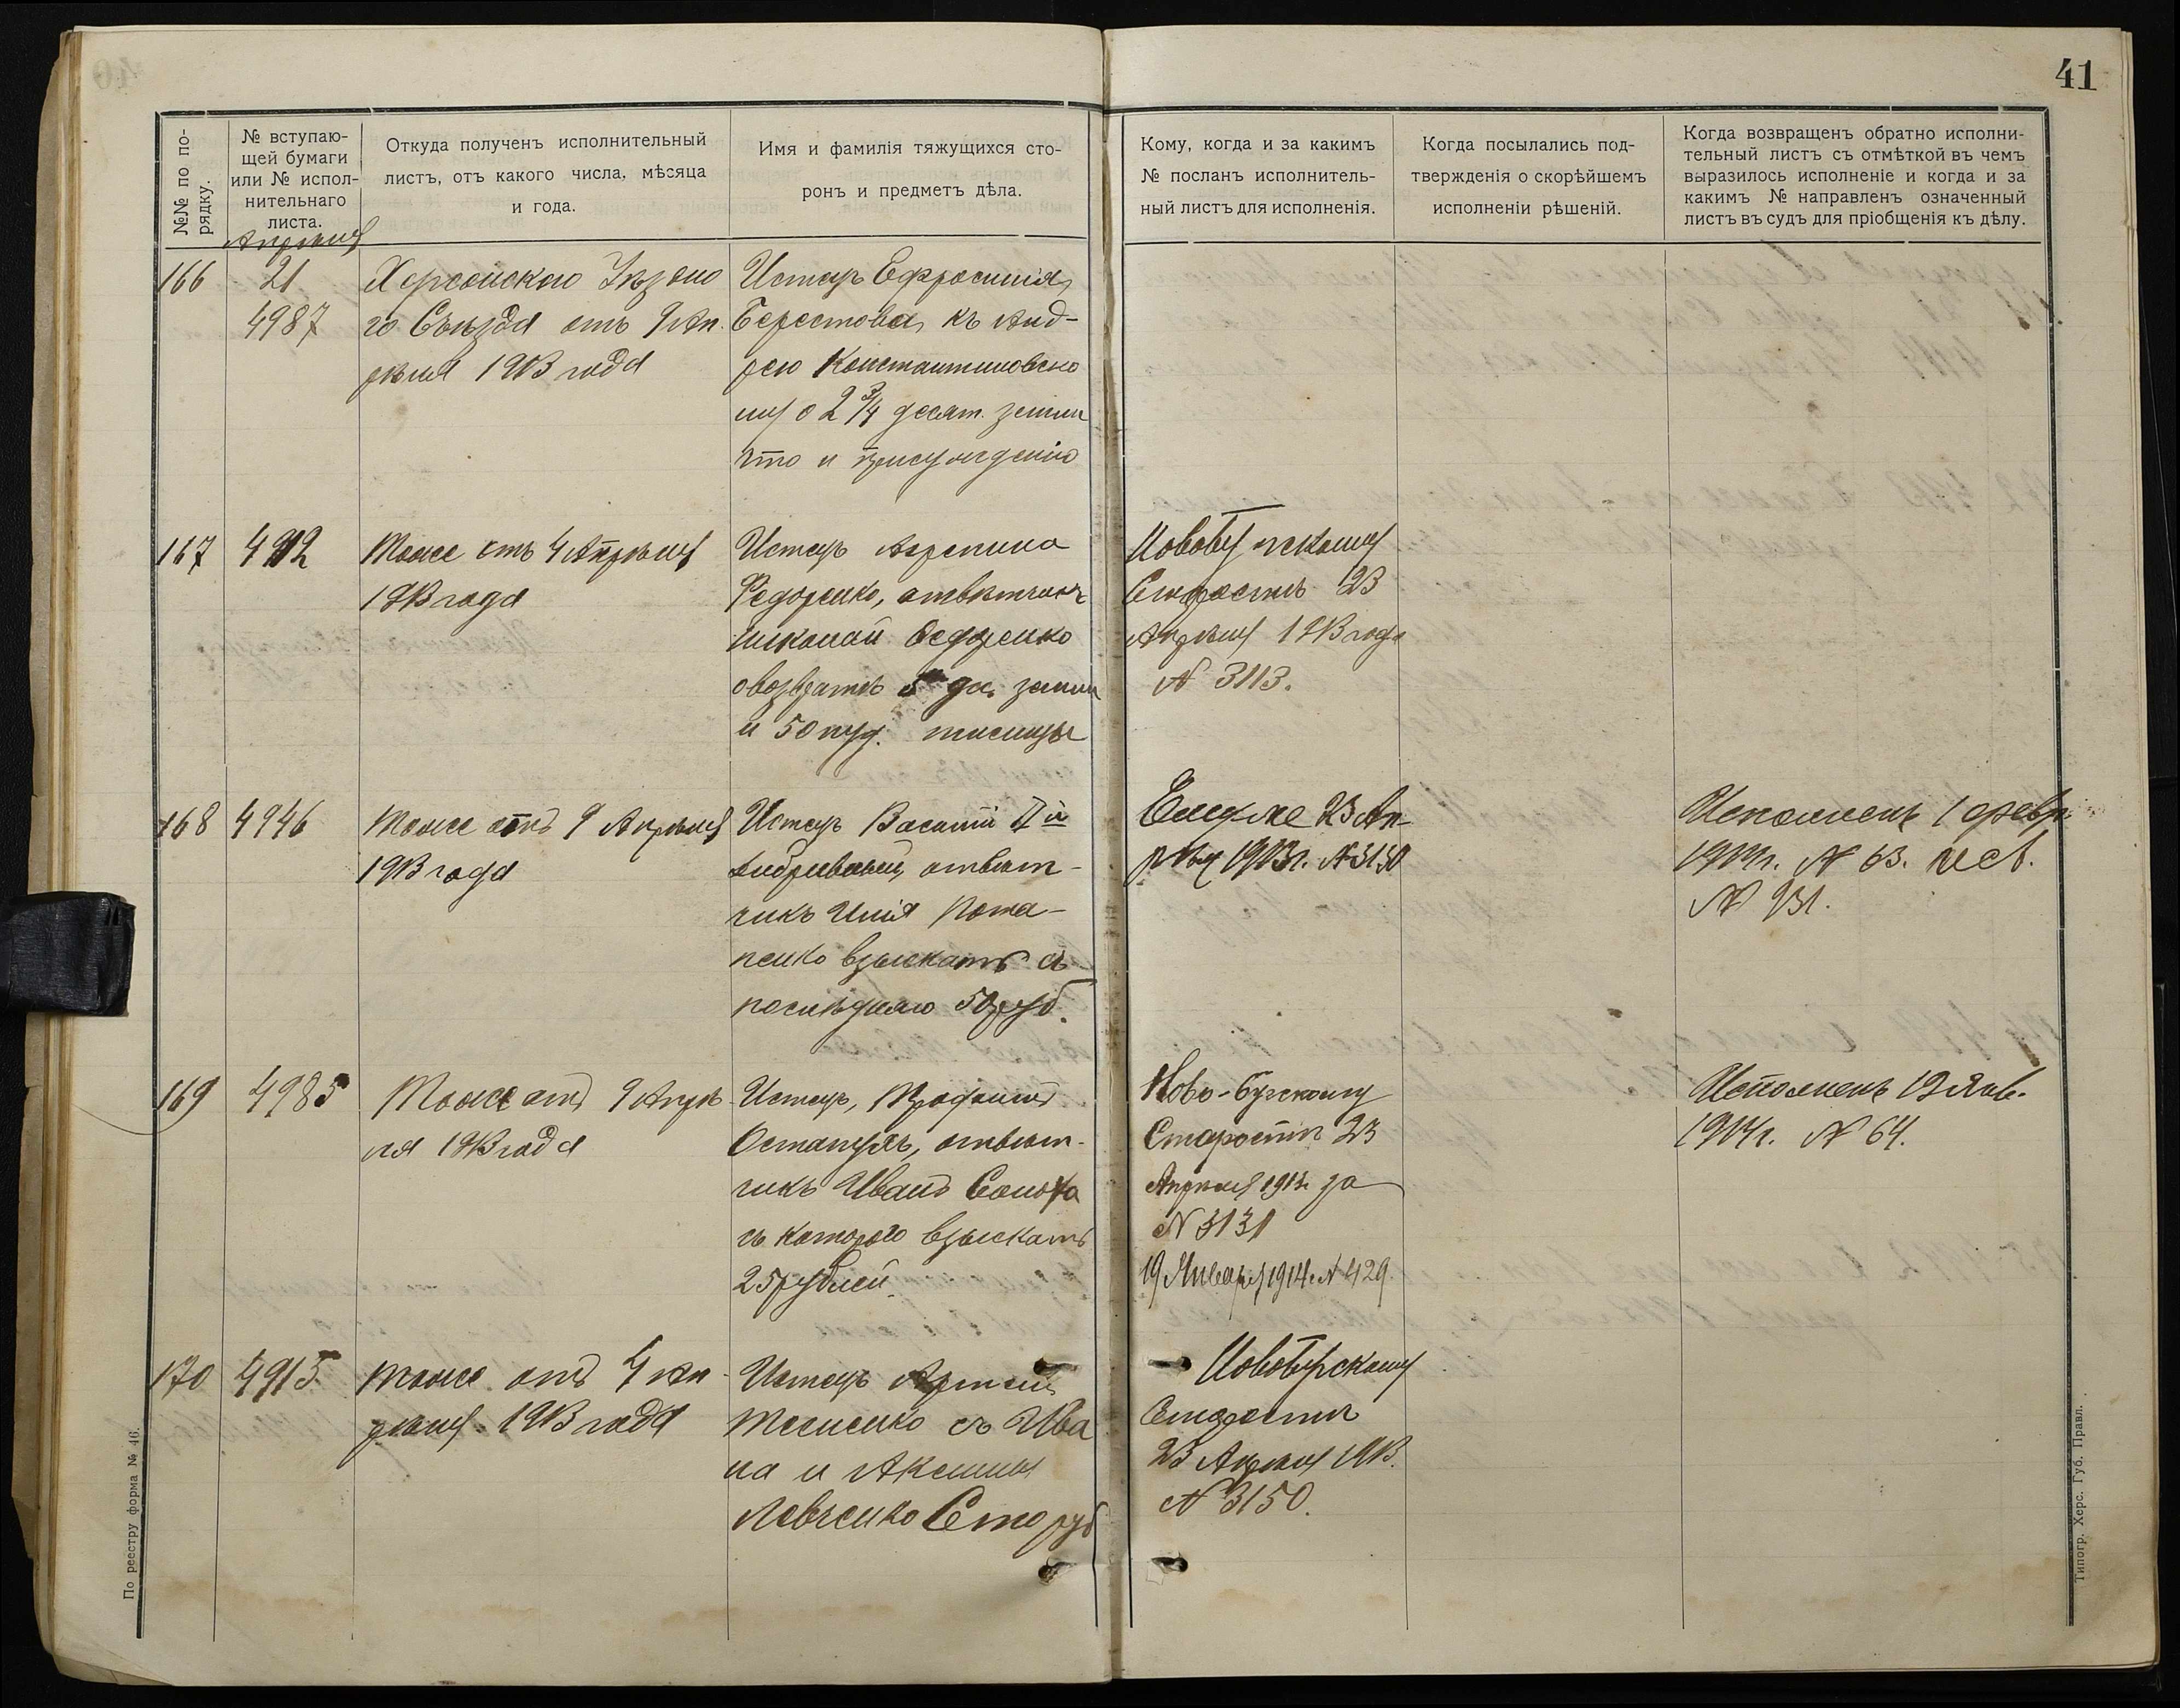 41
№№ по по-
рядку.
№ вступаю-
щей бумаги
или № испол-
нительнаго
листа.
Откуда полученъ исполнительный
листъ, отъ какого числа, мѣсяца
и года.
Имя и фамилія тяжущихся сто-
ронъ и предметъ дѣла.
Кому, когда и за какимъ
№ посланъ исполнитель-
ный листъ для исполненія.
Когда посылались под-
твержденія о скорѣйшемъ
исполненіи рѣшеній.
Когда возвращенъ обратно исполни-
тельный листъ съ отмѣткой въ чемъ
выразилось исполненіе и когда и за
какимъ № направленъ означенный
листъ въ судъ для пріобщенія къ дѣлу.
Апрѣля
166
21
4987
Херсонскаго Уѣздна
го Съѣзда отъ 9 Ап.
рѣля 1913 года
Истецъ Ефросинія
Берестова, къ Анд-
рею Константиновско
му о 2 3/4 десят. земли
что и присуждено
167
4912
Тоже отъ 4 Апрѣля
1913 года
Истецъ Агрепина
Федоренко, отвѣтчикъ
Николай Федоренко
о возвратѣ 5 дес. земли
и 50 пуд. пшеницы
Новобугскому
Старостѣ 23
Апрѣля 1913 года
№ 3113.
168
4946
Тоже отъ 9 Апрѣля
1913 года
Истецъ Василій
отвѣт-
чикъ Илія Пота-
пенко взыскать съ
послѣдняго 50 руб.
Ему же 23 Ап-
рѣля 1913 г. № 3130
Исполненъ 1 февр.
1914 г. № 63. исх.
№ 931.
169
4985
Тоже отъ 9 Апрѣ-
ля 1913 года
Истецъ, Трофимъ
Остапецъ, отвѣт-
чикъ Иванъ Сонько
съ котораго взыскать
25 рублей.
Ново-Бугскому
Старостѣ 23
Апрѣля 1913 г. за
№ 3131
19 Января 1914 г. № 429.
Исполненъ 19 Янв.
1914 г. № 64.
170
4915.
тоже отъ 4 Ап-
рѣля 1913 года
Истецъ
Тесленко съ Ива
на и Аксиньи
Левченко Сто руб
Новобугскому
Старостѣ
23 Апрѣля 1913.
№ 3150.
По реестру форма № 46.
Типогр. Херс. Губ. Правл.